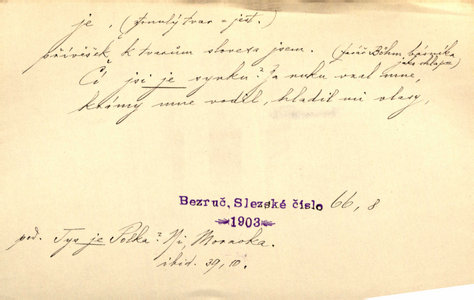 je, (ztrnulý tvar - jest.)
přívěšek k tvarům slovesa jsem. (farář Böhm básníka
jako chlapce)
Čí jsi je synku? Za ruku vzal mne,
který mne vodil, hladil mi vlasy,
Bezruč, Slezské číslo 66, 8
1903
pod. Tys je Polka? Ni, Moravka.
ibid. 39, III.